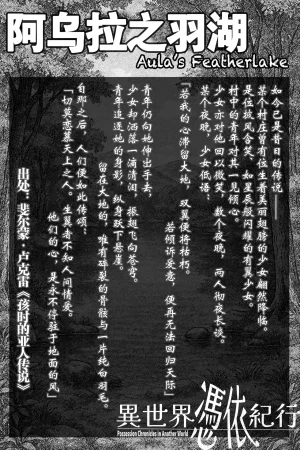 阿乌拉之羽湖
Aula's Featherlake
如今已是昔日的传说——
某个村庄曾有位生着美丽翅膀的少女翩然降临。
是位披风含笑、如星辰般闪耀的有翼少女。
村中的青年对其一见倾心。
少女亦对他回以微笑，数个夜晚，两人彻夜长谈。
某个夜晚，少女低语：
『若我的心滞留大地，双翼便将枯朽。
若倾诉爱意，便再无法回归天际』
青年仍向她伸出手去，
少女却洒落一滴清泪，振翅飞向苍穹。
青年追逐她的身影，纵身跃下悬崖。
留在大地的，唯有碎裂的骨骸与一片纯白羽毛。
自那之后，人们便如此传颂：
「切莫恋慕天上之人。生翼者不知人间情爱。
他们的心，是永不停驻于地面的风」
出处：斐尔蒙·卢克雷《孩时的亚人传说》
異世界憑依紀行
Possession Chronicles in Another World